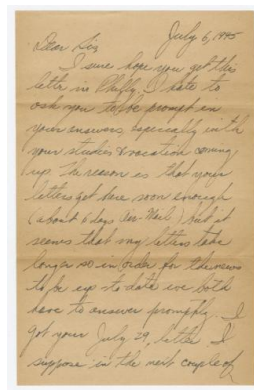 July 6, 1945
Dear Sis
I sure hope you get this
letter in Philly. I hate to
ask you to be prompt in
your answers, especially with
your studies & vacation coming
up. The reason is that your
letters get here soon enough
(about 6 days Air Mail) but it
seems that my letters take
longer so in order for the news
to be up to date we both
have to answer promptly. I
got your July 29, letter. I
suppose in the next couple of